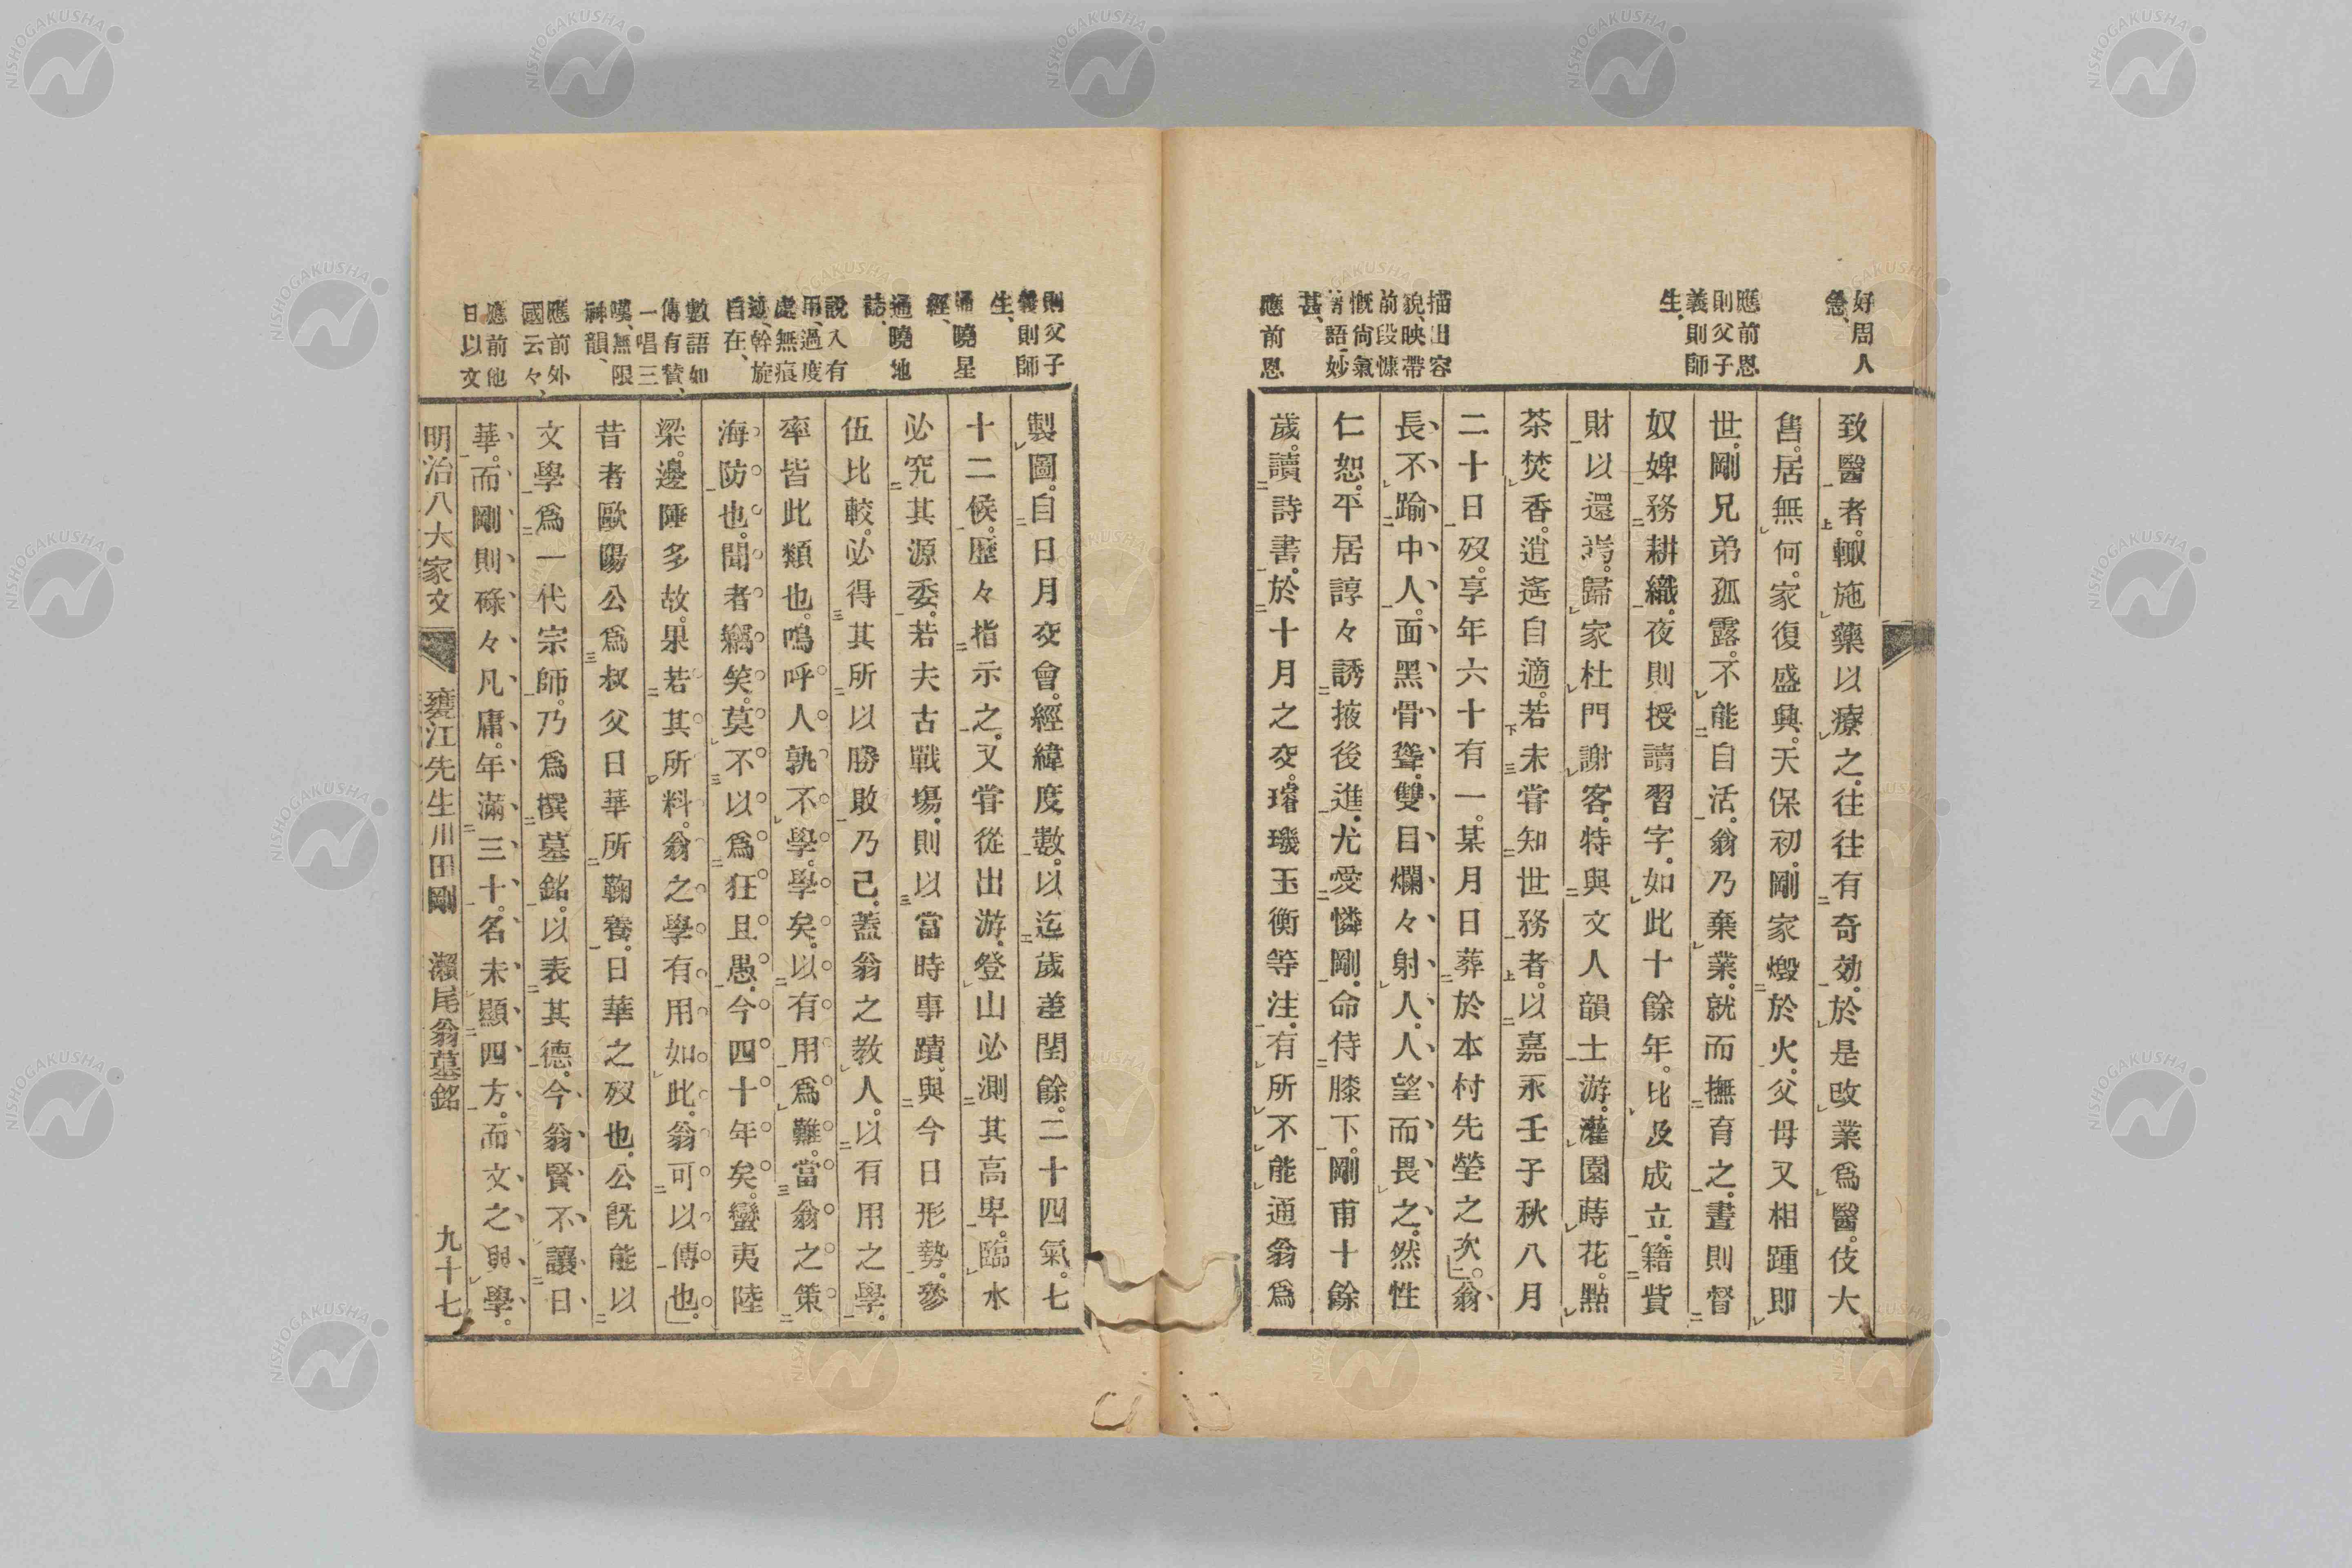 好周人
急、
應前恩
則父子
義則師
生、
描出容
貌、映帶
前段慷
慨尚氣
等語、妙
甚、
應前恩
致醫者。輙施藥以療之。往往有奇効。於是改業爲醫。伎大
售。居無何。家復盛興。天保初。剛家燬於火。父母又相踵即
世。剛兄弟孤露。不能自活。翁乃棄業。就而撫育之。晝則督
奴婢務耕織。夜則授讀習字。如此十餘年。比及成立。籍貲
財以還焉。歸家杜門謝客。特與文人韻士游。灌園蒔花。點
茶焚香。逍遙自適。若未甞知世務者。以嘉永壬子秋八月
二十日歿。享年六十有一。某月日葬於本村先塋之次。」翁
長不踰中人。面黑骨聳。雙目爛々射人。人望而畏之。然性
仁恕。平居諄々誘掖後進。尤愛憐剛。命侍膝下。剛甫十餘
歲。讀詩書。於十月之交。璿璣玉衡等注。有所不能通。翁爲
則父子
義則師
生、
通曉星
經、
通曉地
誌、
說入有
用、過度
處無痕
迹、幹旋
自在、
數語如
傳有賛、
一唱三
嘆、無限
神韻、
應前外
國云々、
應前他
日以文
製圖。自日月交會。經緯度數。以迄歲差閏餘。二十四氣。七
十二候。歷々指示之。又甞從出游。登山必測其高卑。臨水
必究其源委。若夫古戰塲。則以當時事蹟。與今日形勢。參
伍比較。必得其所以勝敗乃已。蓋翁之教人。以有用之學。
率皆此類也。嗚呼人孰不學。學矣。以有用爲難。當翁之策
海防也。聞者竊笑。莫不以爲狂且愚。今四十年矣。蠻夷陸
梁。邊陲多故。果若其所料。翁之學有用如此。翁可以傳也。」
昔者歐陽公爲叔父日華所鞠養。日華之歿也。公旣能以
文學爲一代宗師。乃爲撰墓銘。以表其德。今翁賢不讓日
華。而剛則碌々凡庸。年滿三十。名未顯四方。而文之與學。
明治八大家文 甕江先生川田剛 瀨尾翁墓銘 九十七
NISHOGAKUSHA